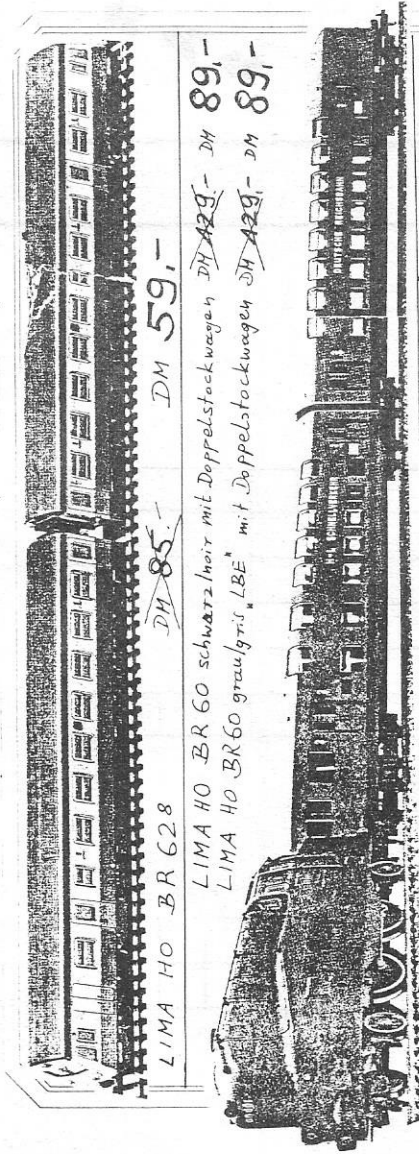 LIMA HO BR 628 DM 85.- DM 59.-
LIMA HO BR 60 schwarz/noir mit Doppelstockwagen DM 129,- DM 89.-
LIMA HO BR60 grau/gris "LBE" mit Doppelstockwagen DM 129,- DM 89.-
DEUTSCHE REICHSBAHN